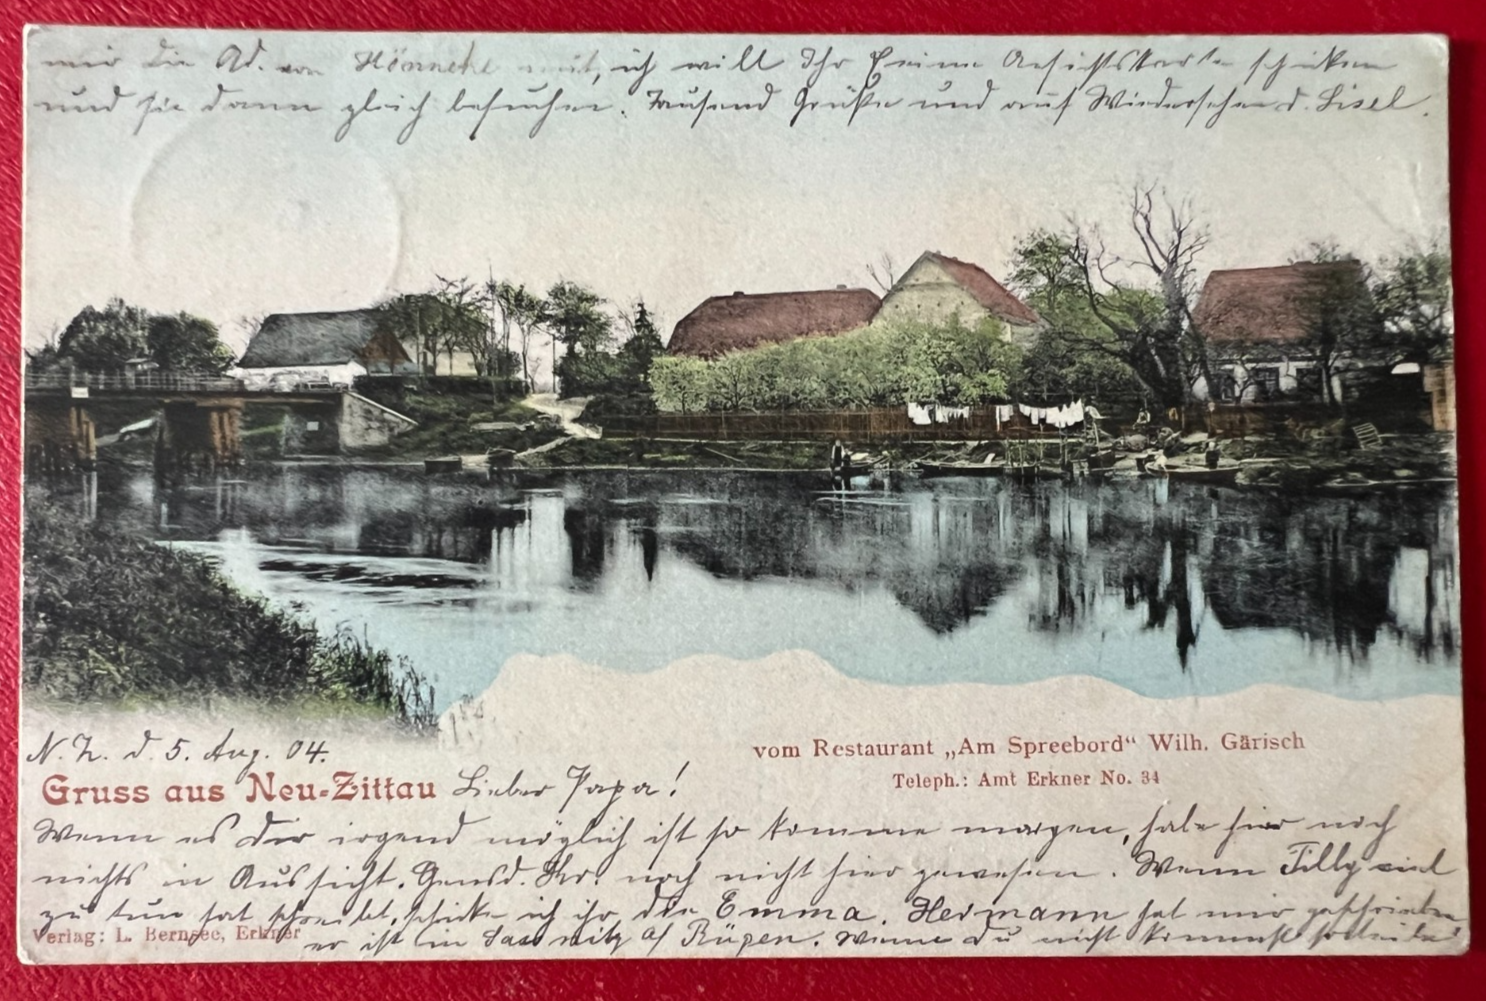 mir die Ad. von Hönneke mit, ich will Ihr keine Ansichtskarte schicken
und sie dann gleich besuchen. Tausend Grüße und auf Wiedersehen d. Lisel.
N. Z. d. 5. Aug. 04.
vom Restaurant „Am Spreebord“ Wilh. Gärisch
Teleph.: Amt Erkner No. 34
Gruss aus Neu-Zittau Lieber Papa!
Wenn es Dir irgend möglich ist so komme morgen, habe hier noch
nichts in Aussicht. Gensd. noch nicht hier gewesen. Wenn Tilly viel
zu tun hat schicke ich ihr die Emma. Hermann hat mir geschrieben
Verlag: L. Bernsee, Erkner
er ist in Sassnitz a/ Rügen. Wenn du nicht kommst